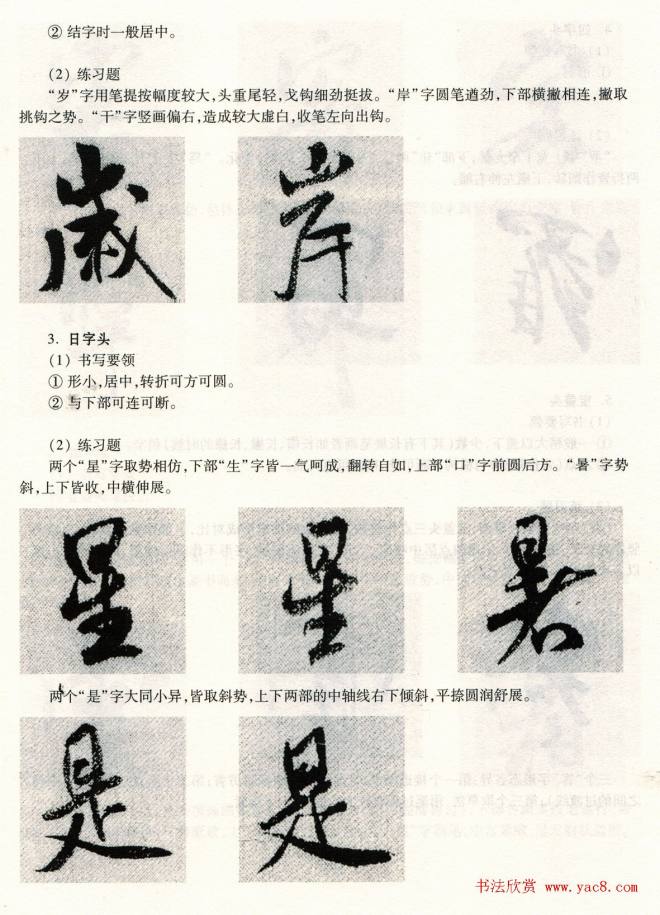 ② 结字时一般居中。
(2) 练习题
“岁”字用笔提按幅度较大,头重尾轻,戈钩细劲挺拔。“岸”字圆笔遒劲,下部横撇相连,撇取
挑钩之势。“干”字竖画偏右,造成较大虚白,收笔左向出钩。
歲 岸
3. 日字头
(1) 书写要领
① 形小,居中,转折可方可圆。
② 与下部可连可断。
(2) 练习题
两个“星”字取势相仿,下部“生”字皆一气呵成,翻转自如,上部“口”字前圆后方。“暑”字势
斜,上下皆收,中横伸展。
星 星 暑
两个“是”字大同小异,皆取斜势,上下两部的中轴线右下倾斜,平捺圆润舒展。
是 是
书法欣赏 www.yac8.com